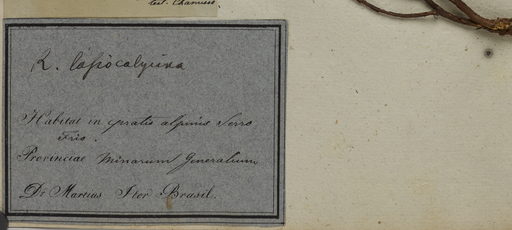 test. Chamisso.
R. lasiocalycina
Habitat in pratis alpinis Serro
Frio.
Provinciae Minarum Generalium
Dr Martius Iter Brasil.